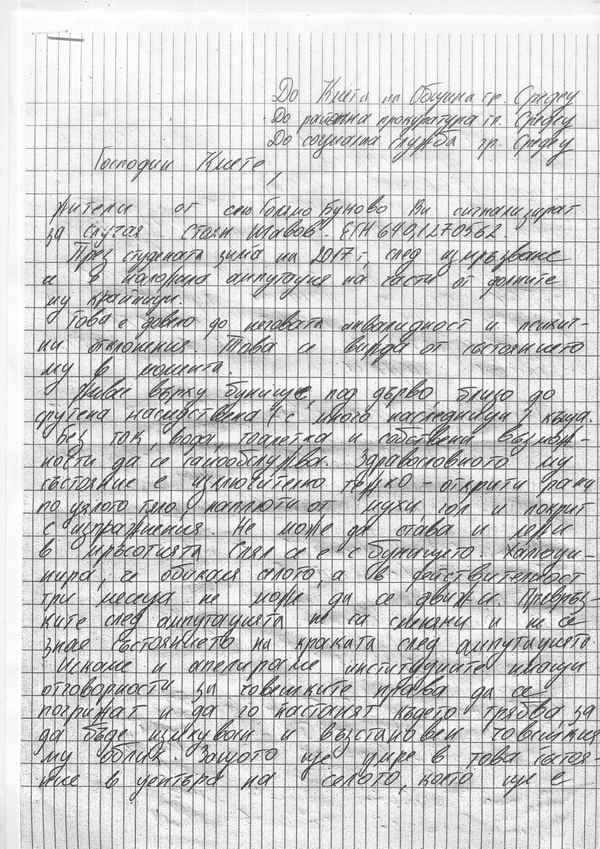 До Кмета на Община гр. Средец
До районна прокуратура гр. Средец
До социална служба гр. Средец
Господин Кмете,
жители от село Голямо Буково Ви сигнализират
за случая "Стоян Шавов" ЕГН 6401270562.
През студената зима на 2017 г, след измръзване
се е наложила ампутация на части от долните
му крайници.
Това е довело до неговата инвалидност и психич-
ни отклонения. Това се вижда от състоянието
му в момента.
Живее върху бунище, под дърво, близо до
срутена наследствена (с много наследници) къща.
Без ток, вода, тоалетка и собствена възмож-
ности да се самообслужва. Здравословното му
състояние е изключително тежко - открити рани
по цялото тяло наплюти от мухи, гол и покрит
с изпражнения. Не може да става и лежи
в мръсотията. Слял се е с бунището. Халюци-
нира, че обикаля селото, а в действителност
три месеца не може да се движи. Превръз-
ките след ампутацията не са сменяни и не се
знае състоянието на краката след ампутацията.
Искаме и апелираме институциите имащи
отговорности за човешките права да се
погрижат и да го настанят където трябва за
да бъде излекуван и възстановен човешкия
му облик. Защото ще умре в това състоя-
ние в центъра на селото, което ще е